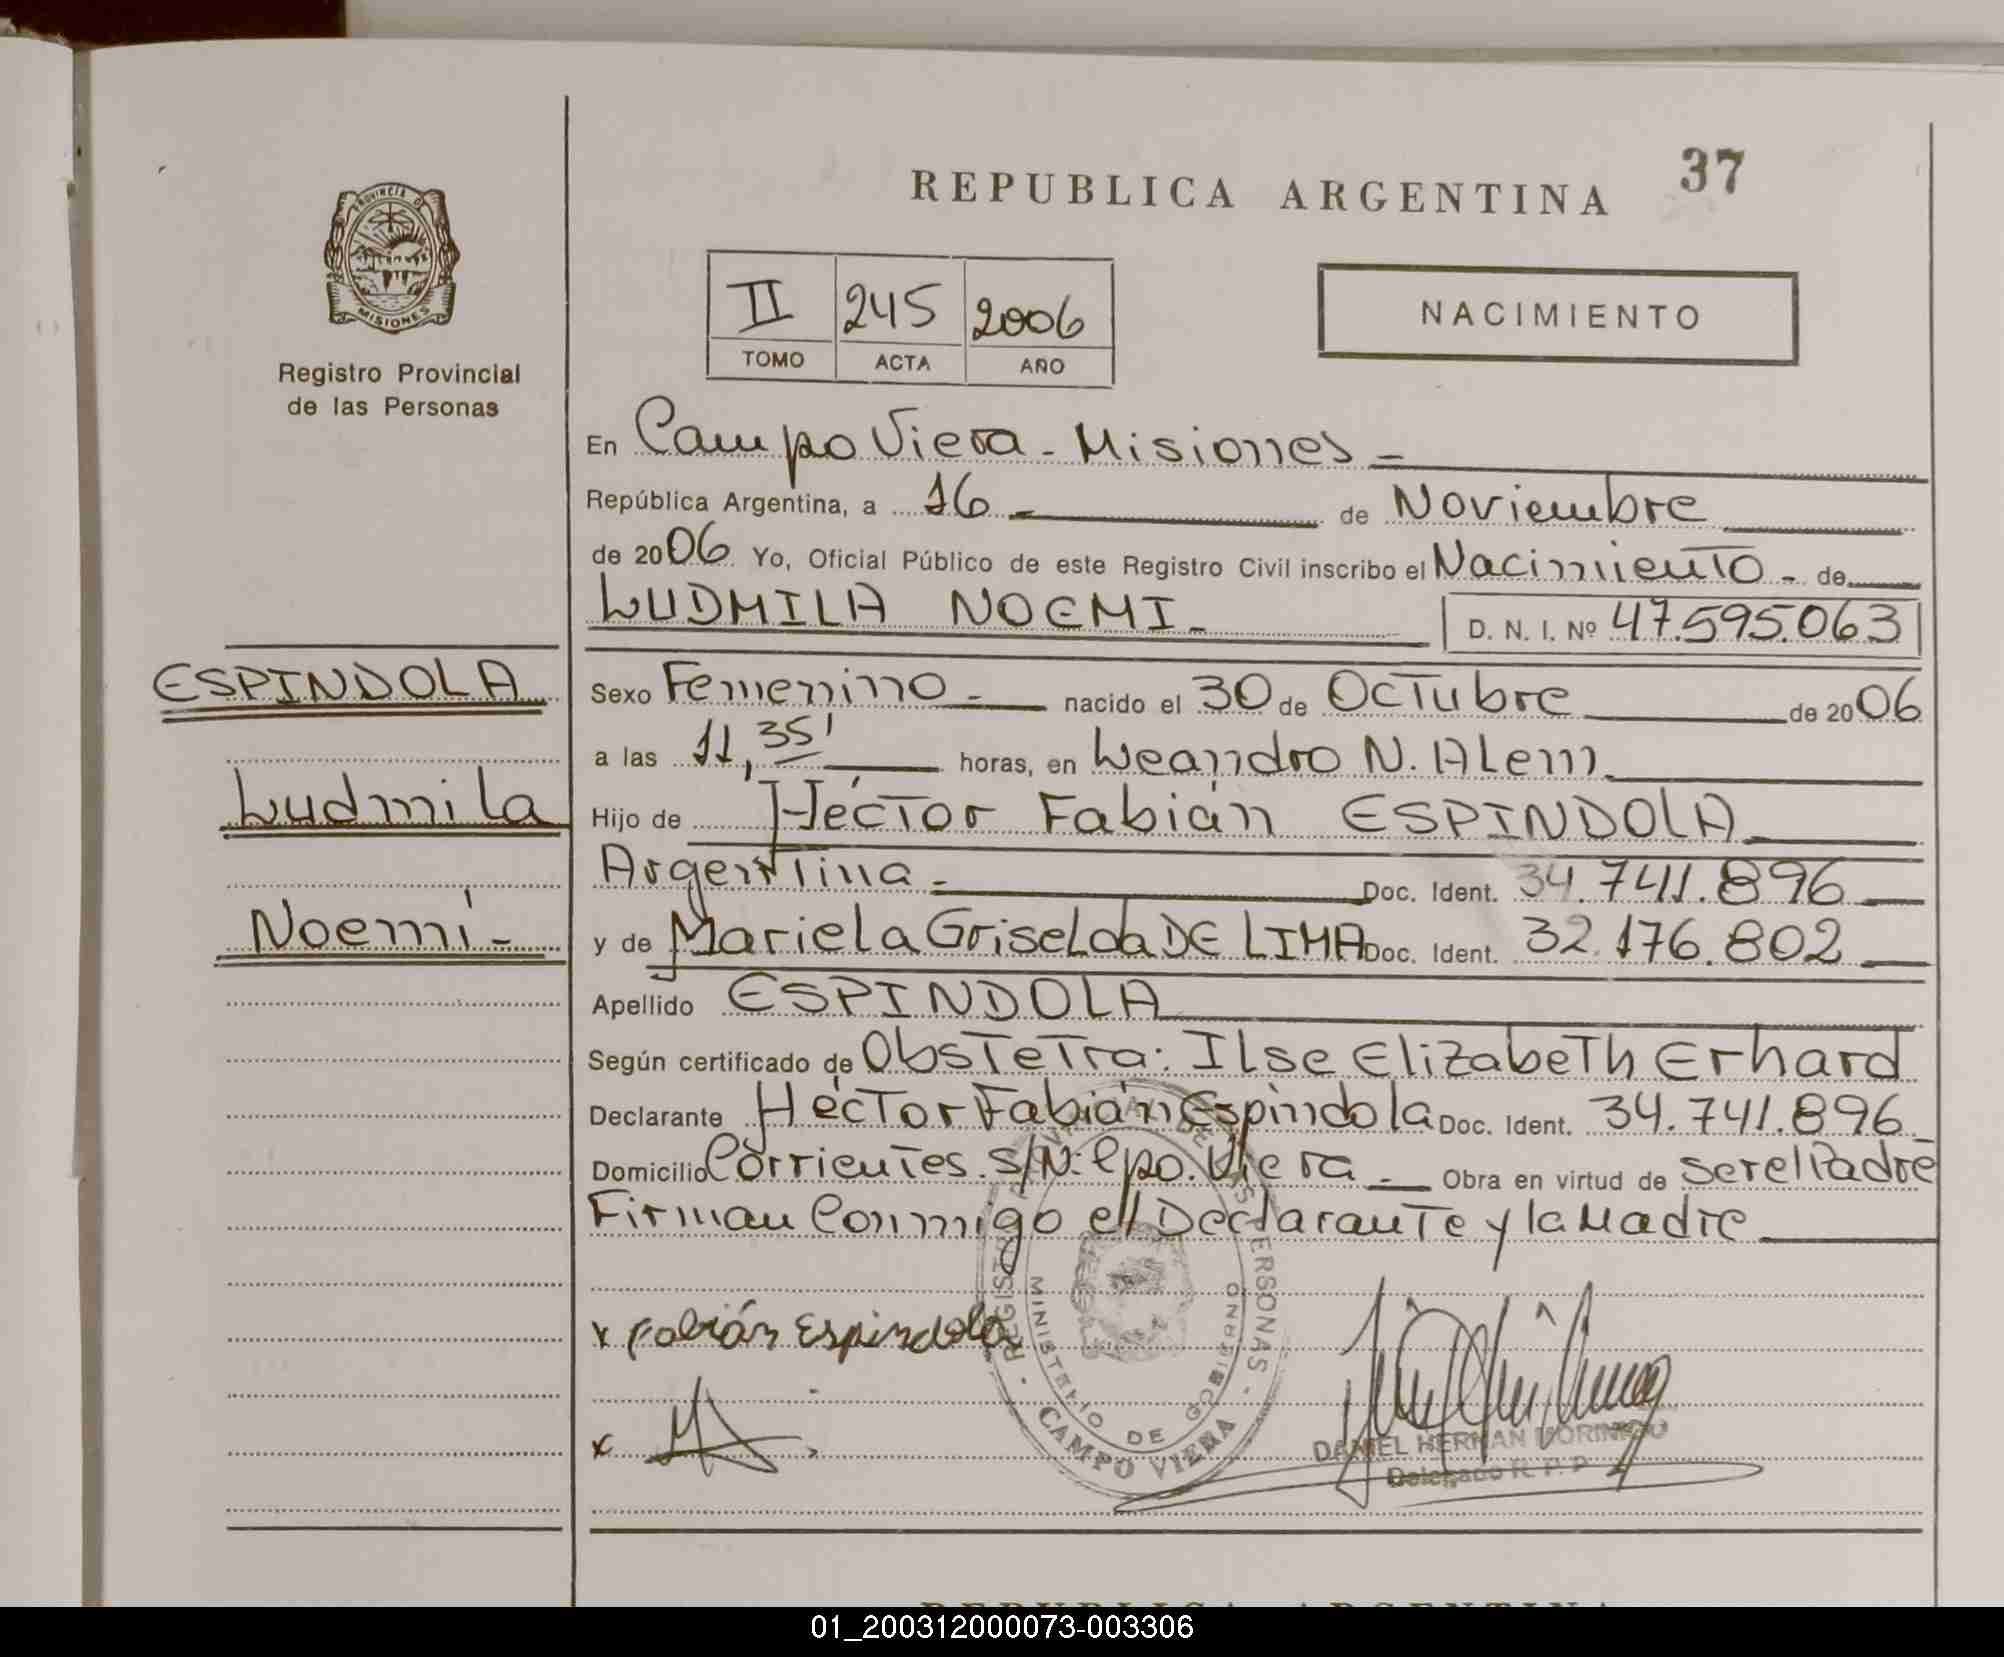 REPUBLICA ARGENTINA 37
PROVINCIA DE
MISIONES
Registro Provincial
de las Personas
II 245 2006
TOMO ACTA AÑO
NACIMIENTO
En Campo Viera - Misiones -
República Argentina, a 16 - de Noviembre
de 2006 Yo, Oficial Público de este Registro Civil inscribo el Nacimiento - de
LUDMILA NOEMI - D. N. I. Nº 47.595.063
ESPINDOLA
Ludmila
Noemí -
Sexo Femenino - nacido el 30 de Octubre de 2006
a las 11,35' horas, en Leandro N. Alem
Hijo de Héctor Fabián ESPINDOLA
Argentina - Doc. Ident. 34.741.896
y de Mariela Griselda DE LIMA Doc. Ident. 32.176.802
Apellido ESPINDOLA
Según certificado de Obstetra: Ilse Elizabeth Erhard
Declarante Héctor Fabián Espindola Doc. Ident. 34.741.896 -
Domicilio Corrientes. S/N. Cpo. Viera - Obra en virtud de ser el Padre
Firman Conmigo el Declarante y la Madre
x Fabián Espindola
x
REGISTRO PROVINCIAL DE LAS PERSONAS - CAMPO VIERA
MINISTERIO DE GOBIERNO
DANIEL HERNAN MORINIGO
Delegado R. P. P.
REPUBLICA ARGENTINA
01_200312000073-003306